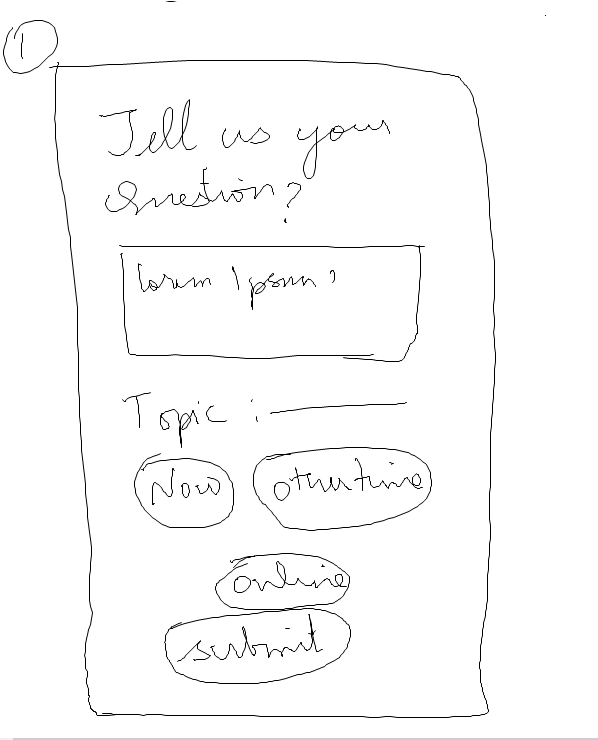 1
Tell us your
Question?
lorem Ipsum?
Topic :
Now
othertime
online
submit